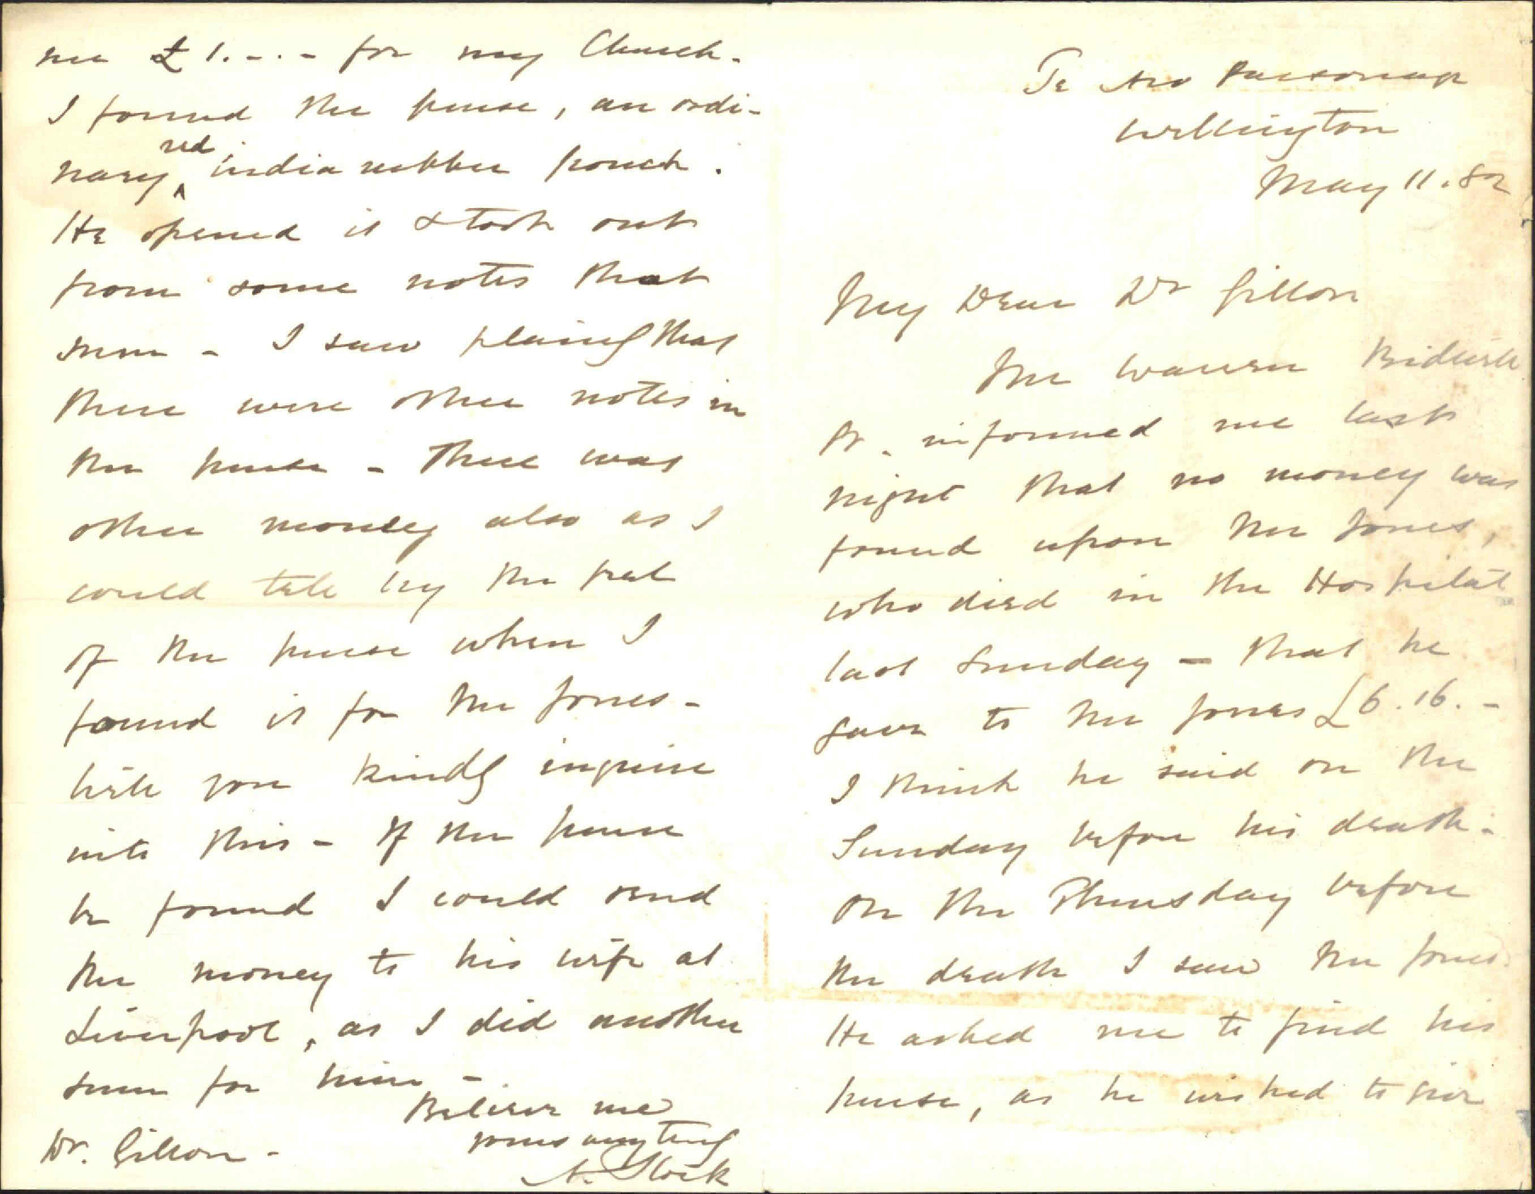 Te Aro Parsonage
Wellington
May 11. 82
My Dear Dr Gillon
Mr Warren
informed me last
night that no money was
found upon Mr Jones,
who died in the Hospital
last Sunday – that he
gave to Mr Jones £6.16.-
I think he said on the
Sunday before his death.
On the Thursday before
the death I saw Mr Jones.
He asked me to find his
purse, as he wished to give
me £1.-.- for my Church.
I found the purse, an ordi-
nary red india rubber pouch.
He opened it & took out
from some notes that
sum – I saw plainly that
there were other notes in
the purse – There was
other money also as I
could tell by the feel
of the purse when I
found it for Mr Jones –
Will you kindly inquire
into this – If the purse
be found I could send
the money to his wife at
Liverpool, as I did another
sum for him –
Believe me
yours truly
A. Stock
Dr. Gillon –